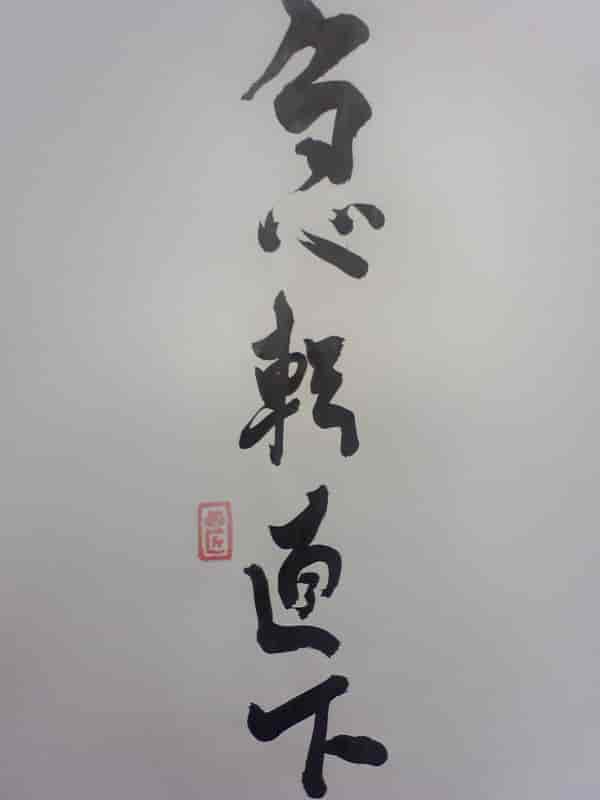 急転直下